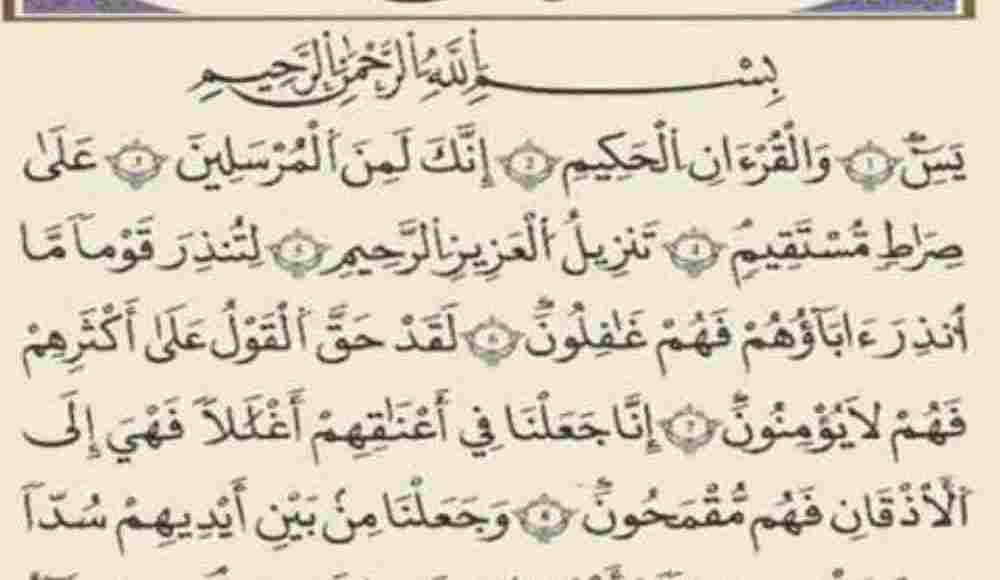 بِسْمِ اِ۬للَّهِ اِ۬لرَّحْمَٰنِ اِ۬لرَّحِيمِ
يَسِٓۖ 1 وَالْقُرْءَانِ اِ۬لْحَكِيمِ 2 إِنَّكَ لَمِنَ اَ۬لْمُرْسَلِينَ 3 عَلَىٰ
صِرَٰطٖ مُّسْتَقِيمٖ 4 تَنزِيلُ اُ۬لْعَزِيزِ اِ۬لرَّحِيمِ 5 لِتُنذِرَ قَوْماٗ مَّا
أُنذِرَ ءَابَآؤُهُمْ فَهُمْ غَٰفِلُونَۖ 6 لَقَدْ حَقَّ اَ۬لْقَوْلُ عَلَىٰ أَكْثَرِهِمْ
فَهُمْ لَا يُؤْمِنُونَۖ 7 إِنَّا جَعَلْنَا فِي أَعْنَٰقِهِمْ أَغْلَٰلاٗ فَهْيَ إِلَى
اَ۬لْأَذْقَانِ فَهُم مُّقْمَحُونَۖ 8 وَجَعَلْنَا مِنۢ بَيْنِ أَيْدِيهِمْ سُدّاٗ